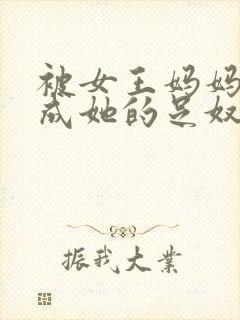 被女王妈妈
成她的足奴
振我大业